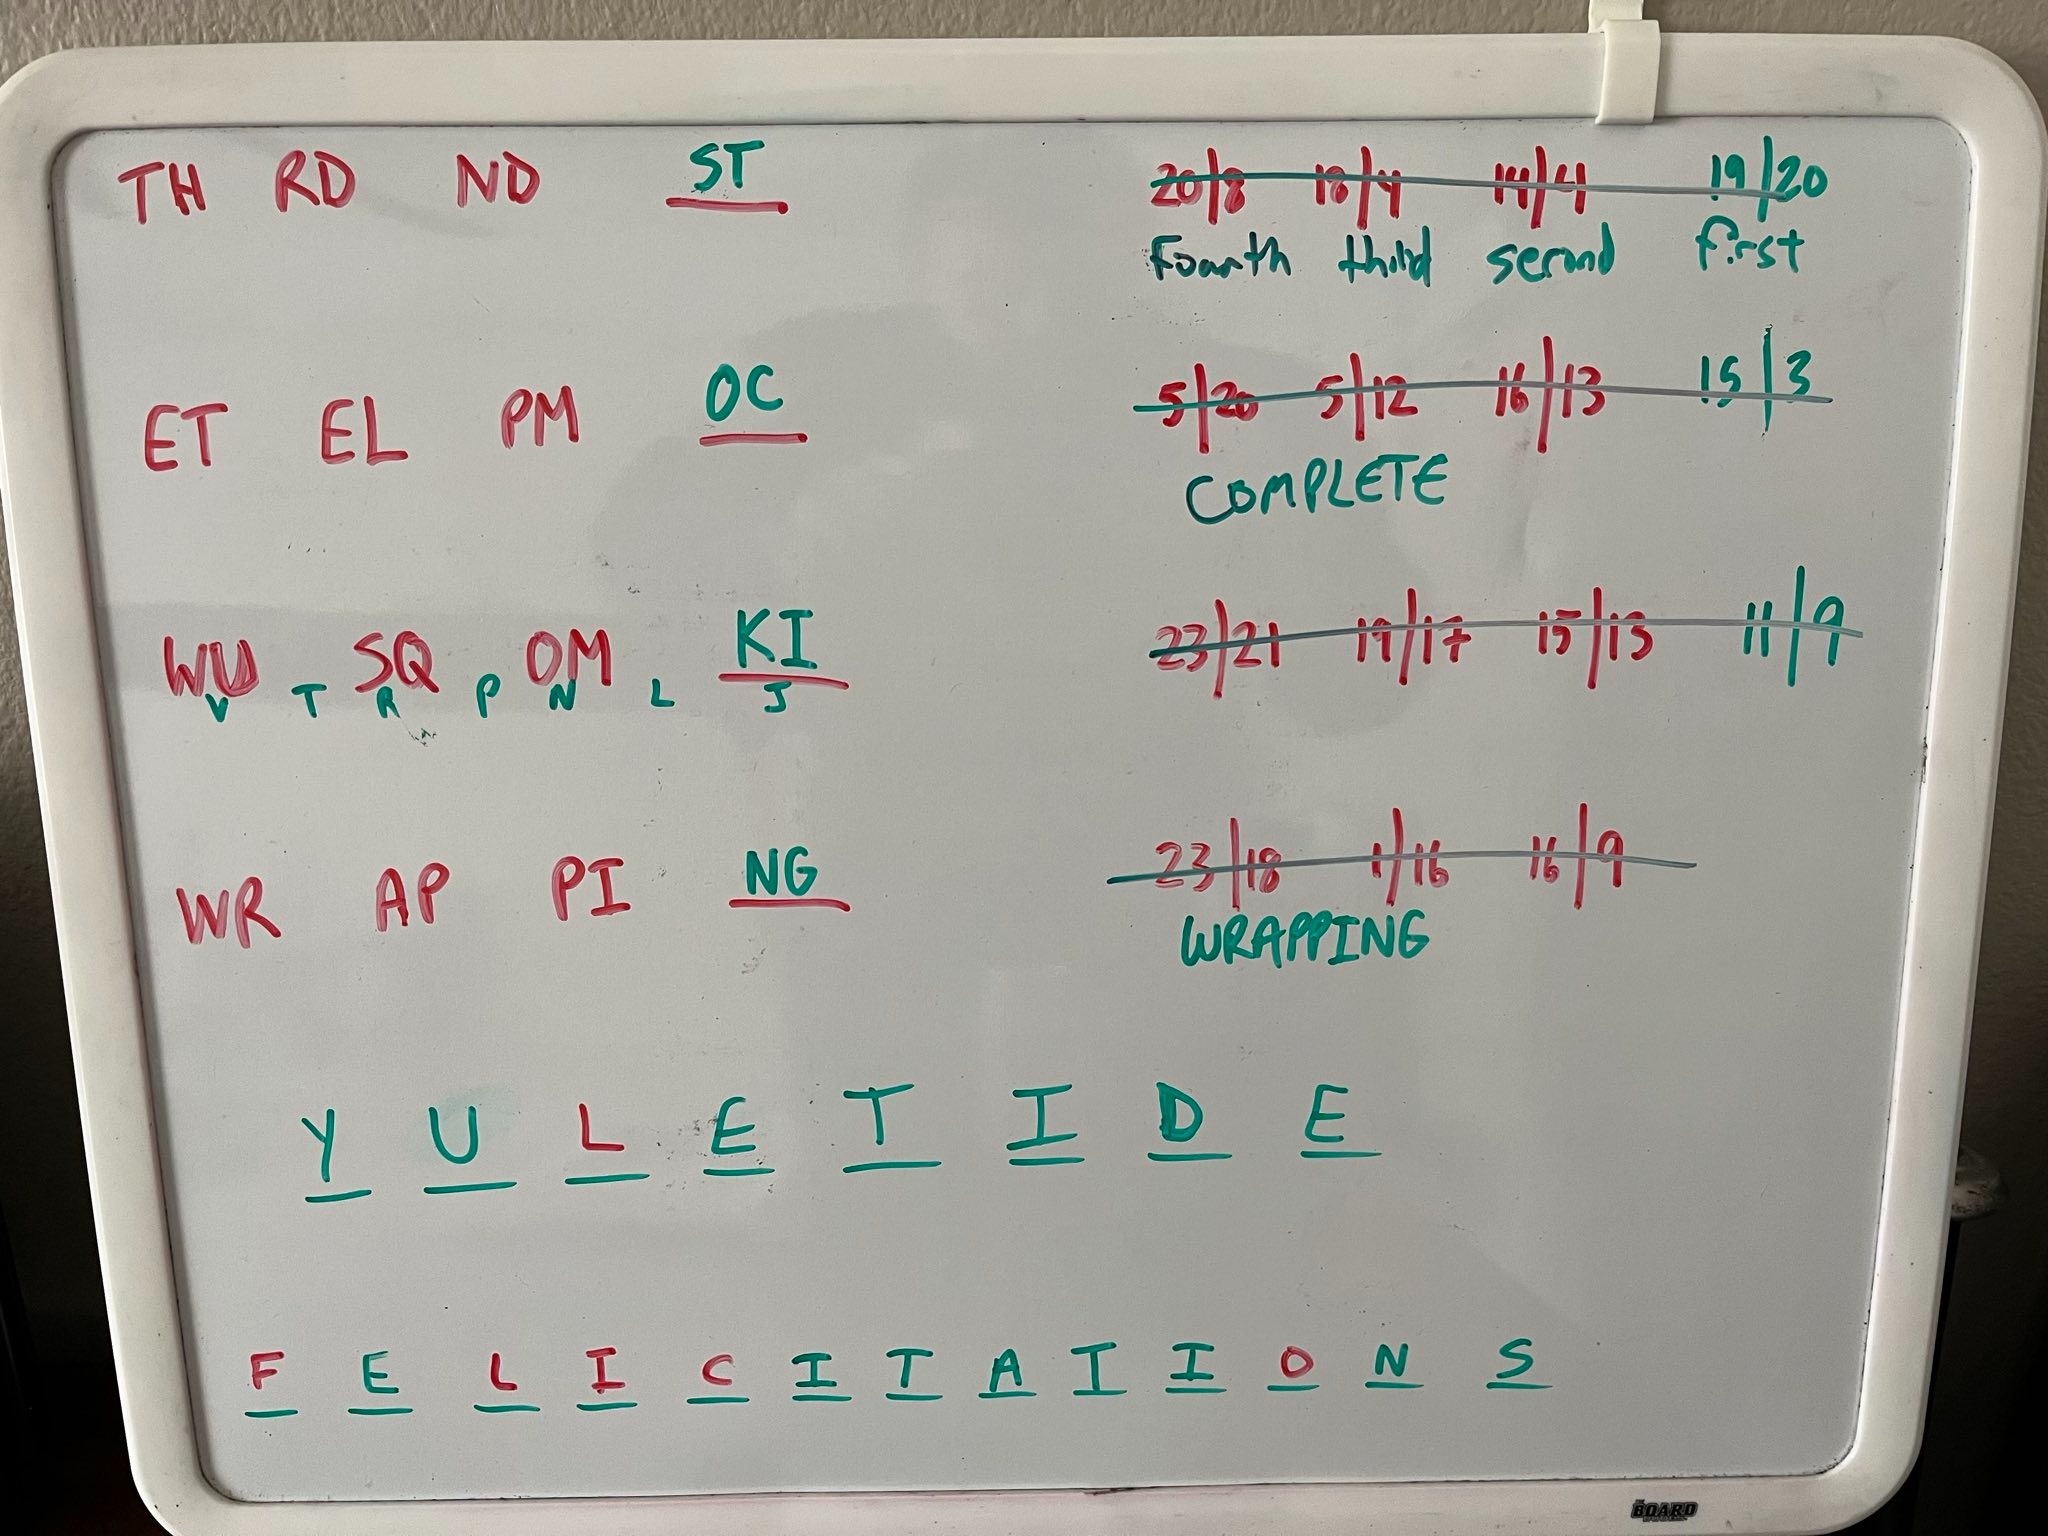 TH RD ND ST
20/8 18/4 14/4 19/20
Fourth third second first
ET EL PM OC
5/20 5/12 16/13 15/3
COMPLETE
WU SQ OM KI
V T R P N L J
23/21 19/17 15/13 11/9
WR AP PI NG
23/18 1/16 16/9
WRAPPING
Y U L E T I D E
F E L I C I T A T I O N S
THE BOARD